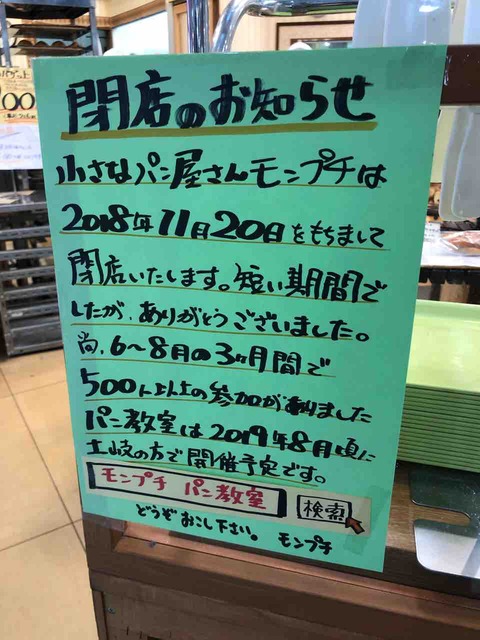 閉店のお知らせ
小さなパン屋さんモンプチは
2018年11月20日をもちまして
閉店いたします。短い期間で
したが、ありがとうございました。
尚、6〜8月の3ヶ月間で
500人以上の参加がありました
パン教室は2019年8月頃に
土岐の方で開催予定です。
モンプチ パン教室 検索
どうぞ おこし下さい。 モンプチ